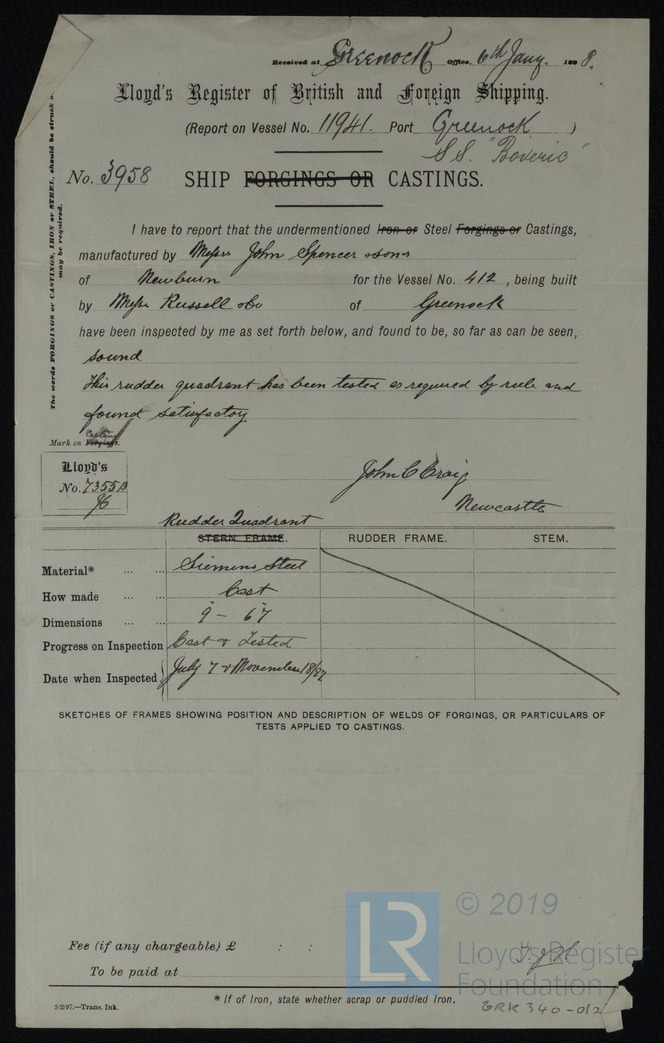 Received at Greenock Office, 6th Jany. 1898.
Lloyd's Register of British and Foreign Shipping.
(Report on Vessel No. 11941. Port Greenock )
S.S. "Boveric"
No. 3958 SHIP FORGINGS OR CASTINGS.
The words FORGINGS or CASTINGS, IRON or STEEL, should be struck o
may be required.
I have to report that the undermentioned Iron or Steel Forgings or Castings,
manufactured by Messrs John Spencer & Sons
of Newburn for the Vessel No. 412, being built
by Messrs Russell & Co of Greenock
have been inspected by me as set forth below, and found to be, so far as can be seen,
sound
This rudder quadrant has been tested as required by rule and
found satisfactory
Casting
Mark on Forgings.
Lloyd's
No. 7355B
John C Craig
Newcastle
Rudder Quadrant
STERN FRAME. RUDDER FRAME. STEM.
Material* ... ... Siemens Steel
How made ... ... Cast
Dimensions ... ... 9" - 6"7
Progress on Inspection Cast & Tested
Date when Inspected July 7 & November 18/97
SKETCHES OF FRAMES SHOWING POSITION AND DESCRIPTION OF WELDS OF FORGINGS, OR PARTICULARS OF
TESTS APPLIED TO CASTINGS.
Fee (if any chargeable) £ : :
To be paid at
* If of Iron, state whether scrap or puddled Iron.
3/2/97.—Trans. Ink.
GRK 340-012
LR
© 2019
Lloyd's Register
Foundation